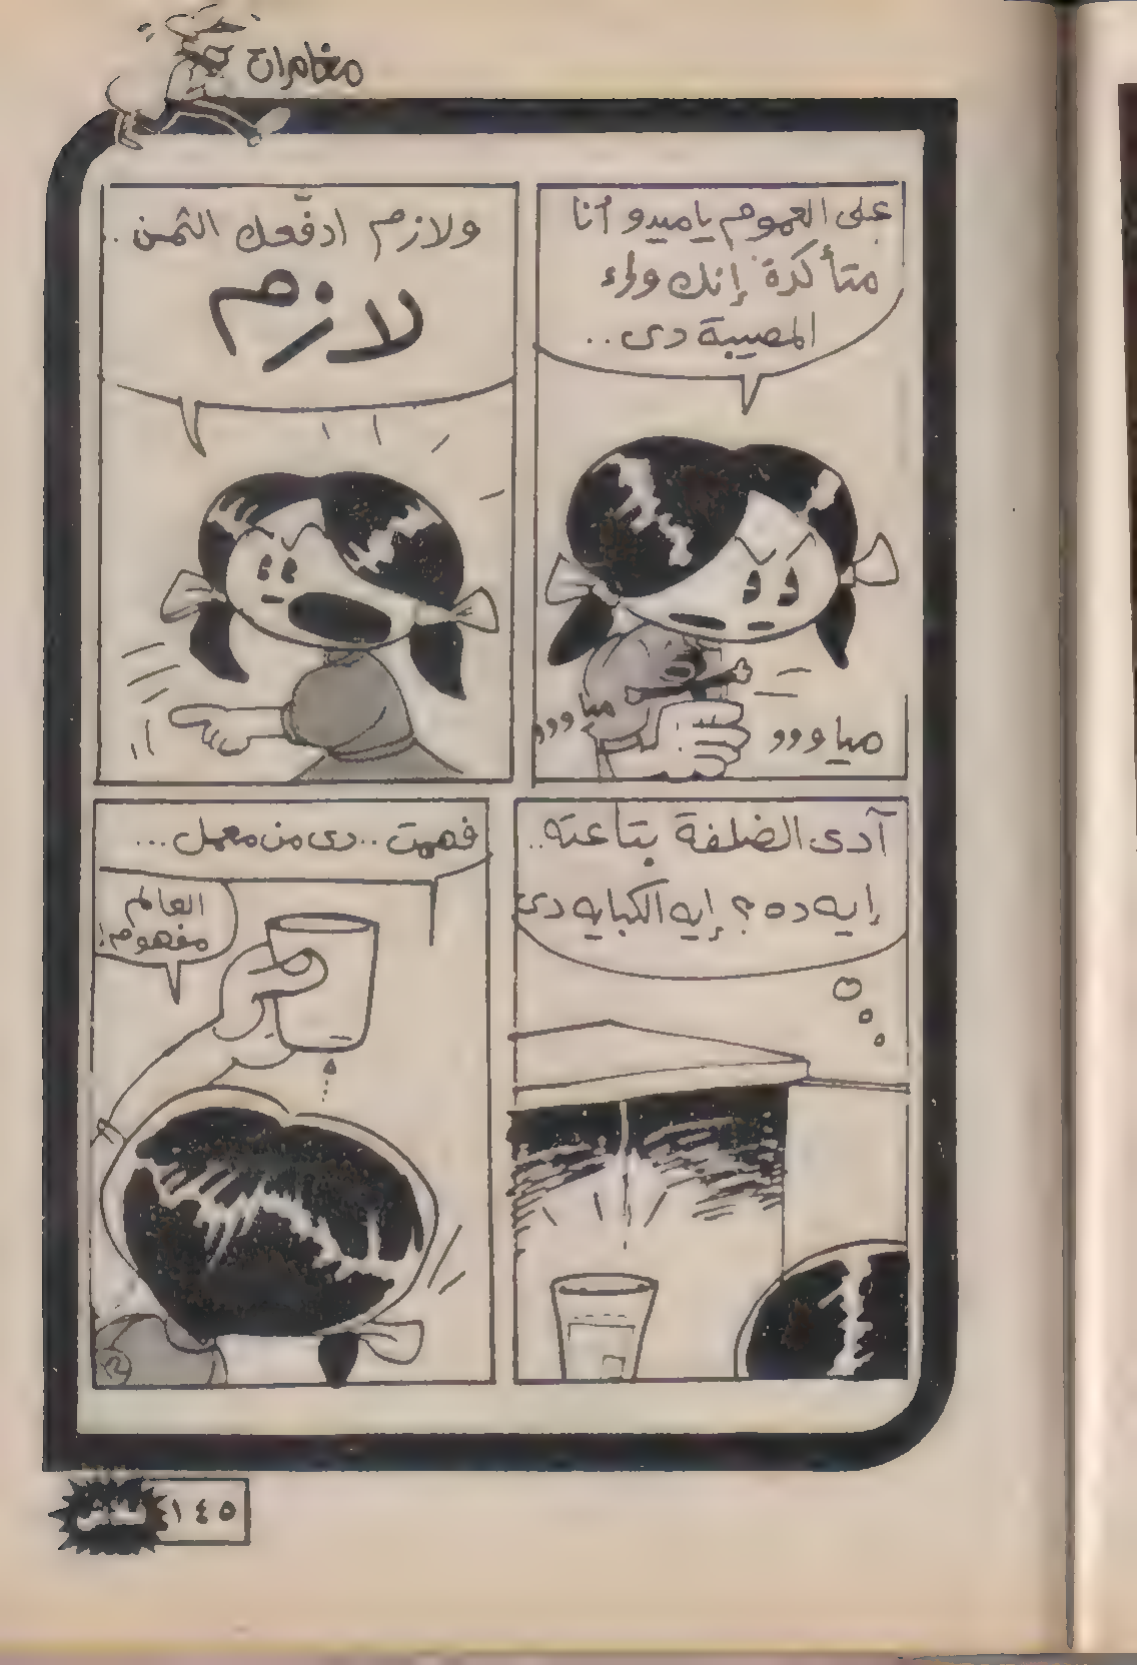 مغامرات
على العموم ياميدو أنا
متأكدة إنك وراء
المصيبة دى..
مياووو
مياووو
ولازم ادفَّعك الثمن..
لازم
آدى الضلفة بتاعته..
إيه ده؟ إيه الكبايه دى
فهمت..دى من معمل...
العالم
مفهوم!
فلاش
١٤٥